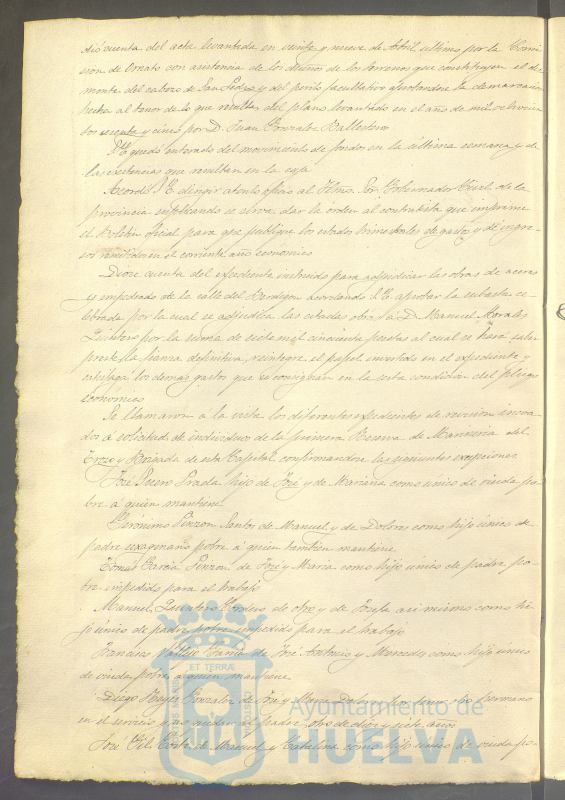 dió cuenta del acta levantada en veinte y nueve de Abril último por la Comi-
sion de Ornato con asistencia de los dueños de los terrenos que constituyen el des-
monte del cabezo de San Pedro y del perito facultativo ejecutandose la demarcacion
hecha al tenor de lo que resulta del plano levantado en el año de mil ochocien
tos y cinco por D. Juan Gonzalez Ballesteros
S.E. quedó enterado del movimiento de fondos en la última semana y de
las existencias que resultan en la caja
Acordó S.E. dirigir atento oficio al Iltmo. Sor. Gobernador Civil de la
provincia suplicando se sirva dar la orden al contratista que imprime
el Boletin oficial para que publique los estados trimestrales de gastos y de ingre-
sos en el corriente año económico
Diose cuenta del expediente instruido para adjudicar las obras de aceras
y empedrado de la calle del acordando S.E. aprobar la subasta ce-
lebrada por la cual se adjudica las citadas obras a D. Manuel Morales
Quintero por la suma de siete mil cincuenta pesetas al cual se hará saber
preste la fianza definitiva, reintegre el papel invertido en el expediente y
satisfaga los demas gastos que se consignan en la sesta condicion del pliego
económico
Se llamaron a la vista los diferentes expedientes de revision incoa-
dos á solicitud de individuos de la primera Reserva de Marineria del
Trozo y Brigada de esta Capital confirmandose las siguientes excepciones
José Suero Prada hijo de José y de Mariana como único de viuda po-
bre á quien mantiene
Gerónimo Pinzon Santos de Manuel y de Dolores como hijo único de
padre sexagenario pobre á quien tambien mantiene
Tomás Garcia Pinzon de José y Maria como hijo único de padre po-
bre impedido para el trabajo
Manuel Quintero Cordero de José y de Josefa asi mismo como hi-
jo único de padre pobre impedido para el trabajo
Francisco Vallejo de José Antonio y Mercedes como hijo único
de viuda pobre a quien mantiene
Diego Reyes Gonzalez de José y Maria Dolores por tener otro hermano
en el servicio y no quedar al padre otro de diez y siete años
José Gil Costa de Manuel y Catalina como hijo único de viuda po-
ET TERRÆ
Ayuntamiento de
HUELVA